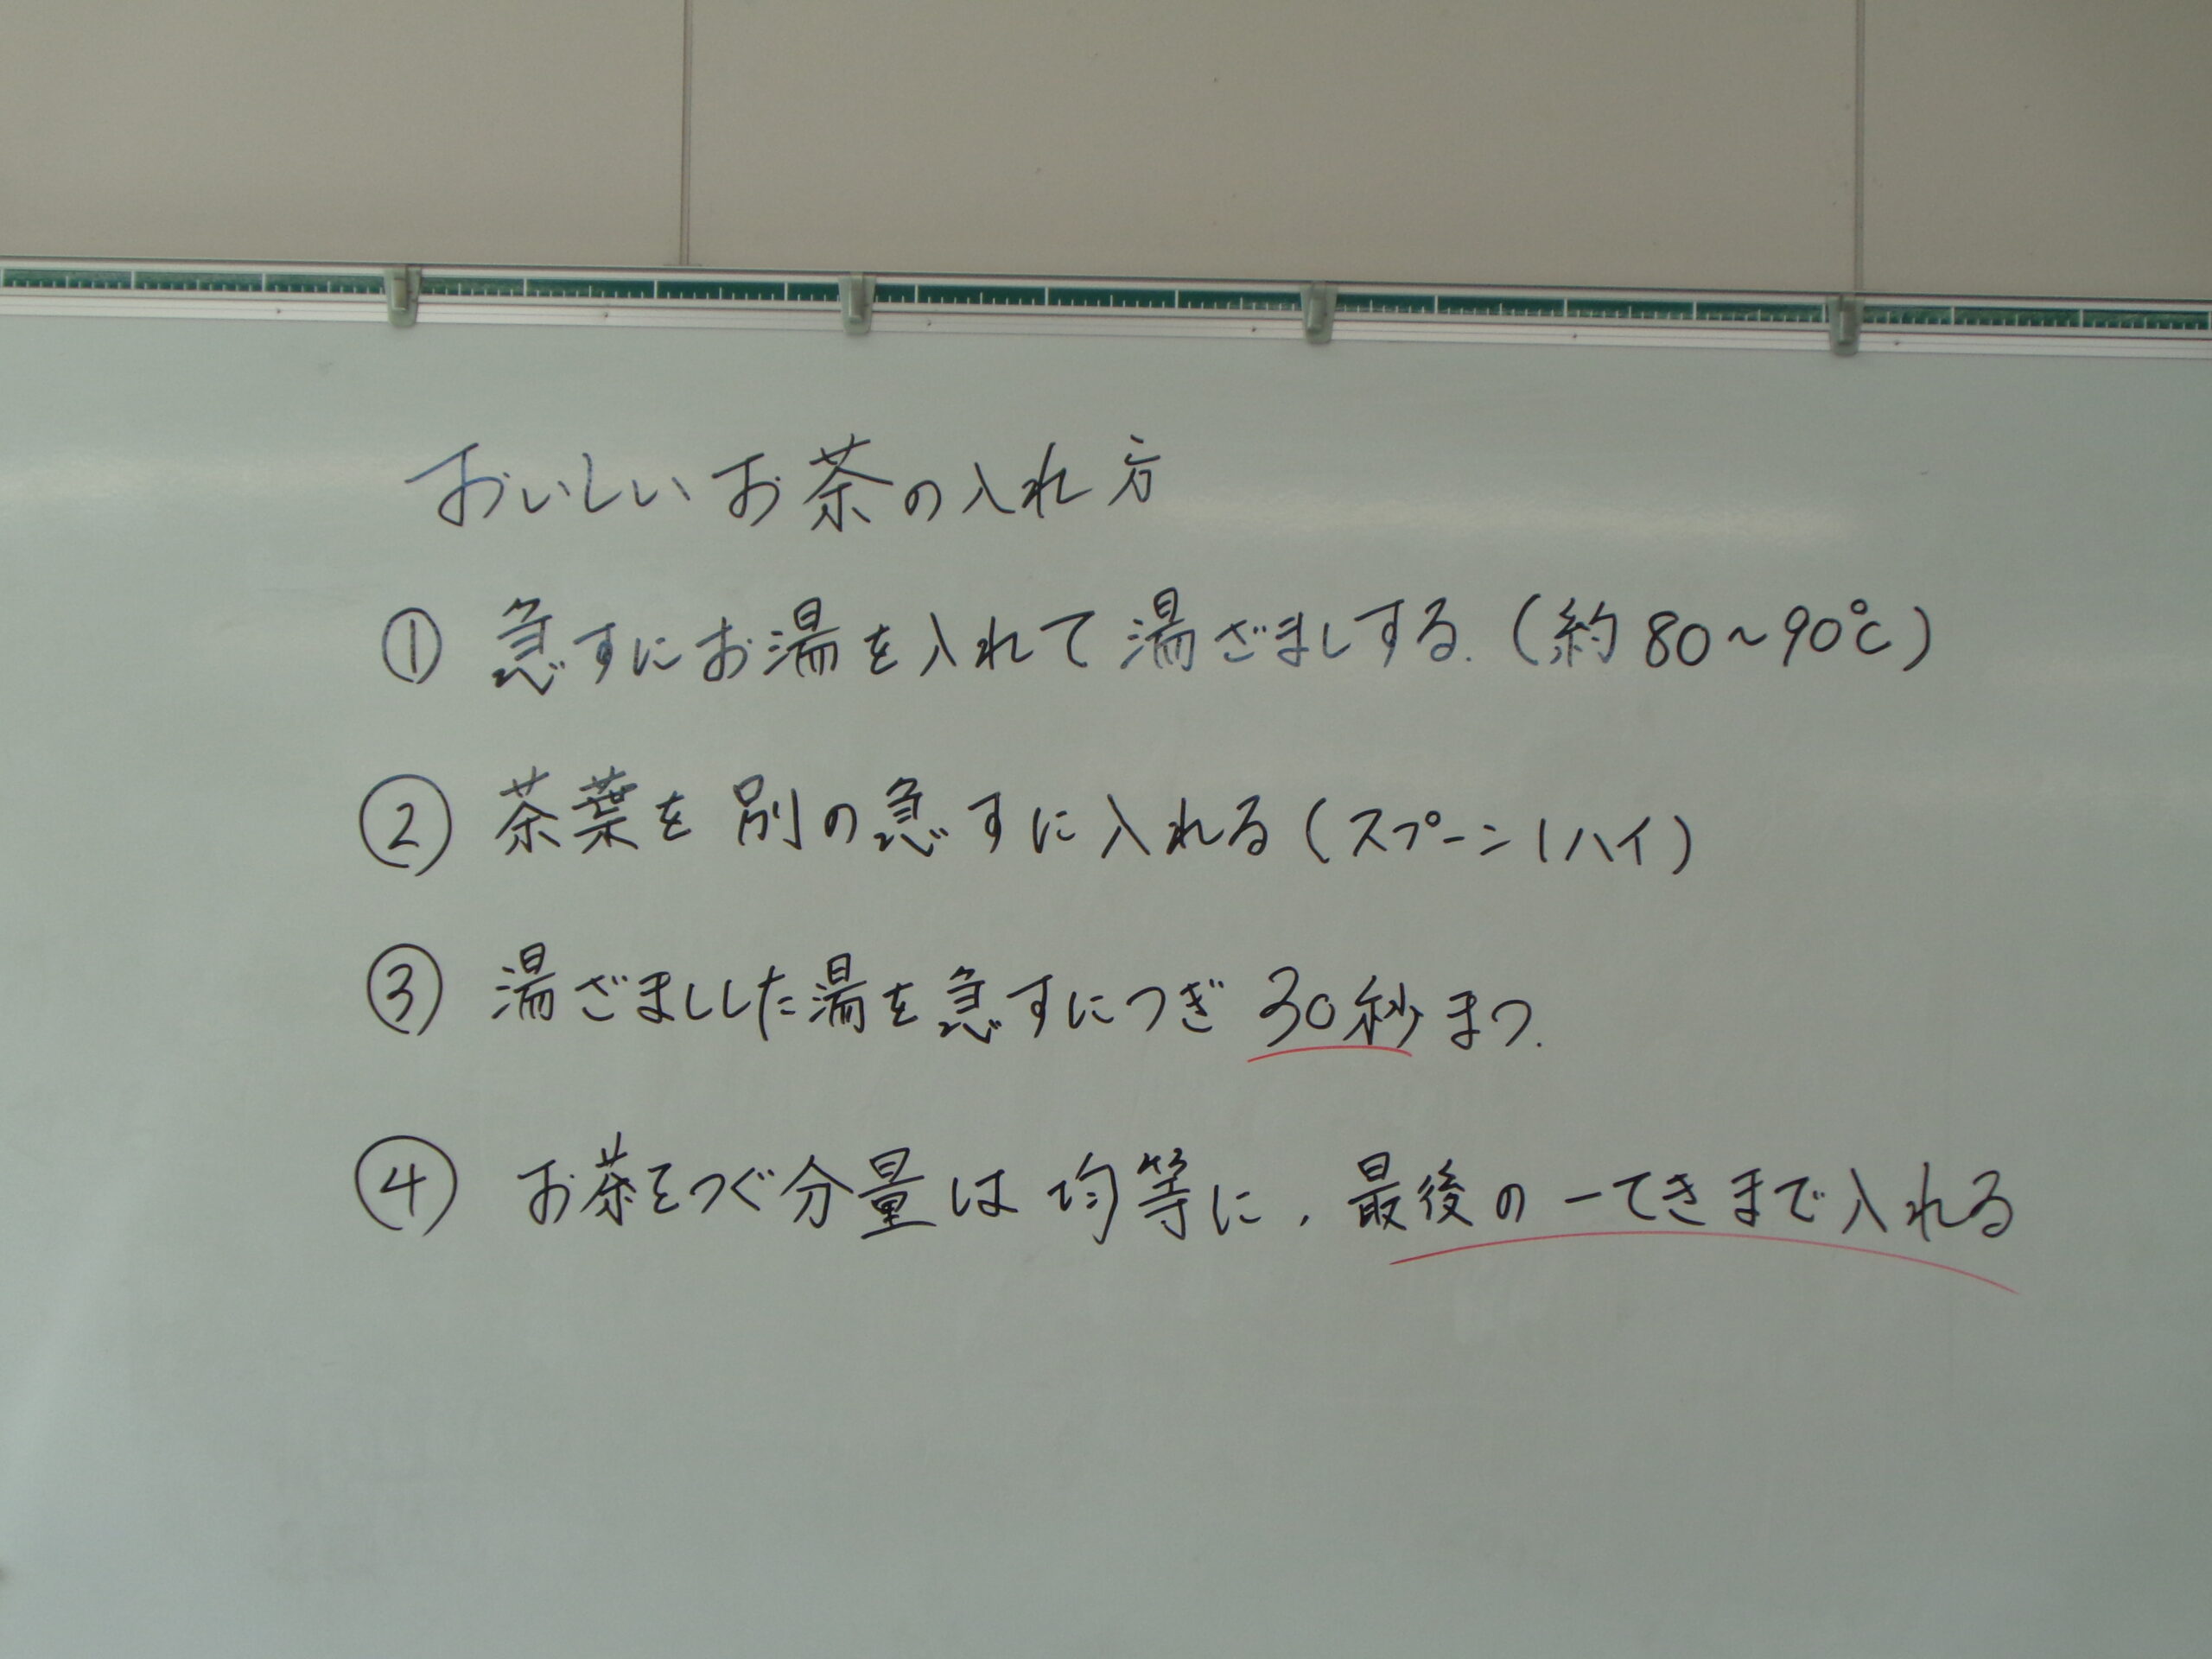 おいしいお茶の入れ方
① 急すにお湯を入れて湯ざましする.(約80~90℃)
② 茶葉を別の急すに入れる(スプーン1ハイ)
③ 湯ざましした湯を急すにつぎ30秒まつ.
④ お茶をつぐ分量は均等に、最後の一てきまで入れる